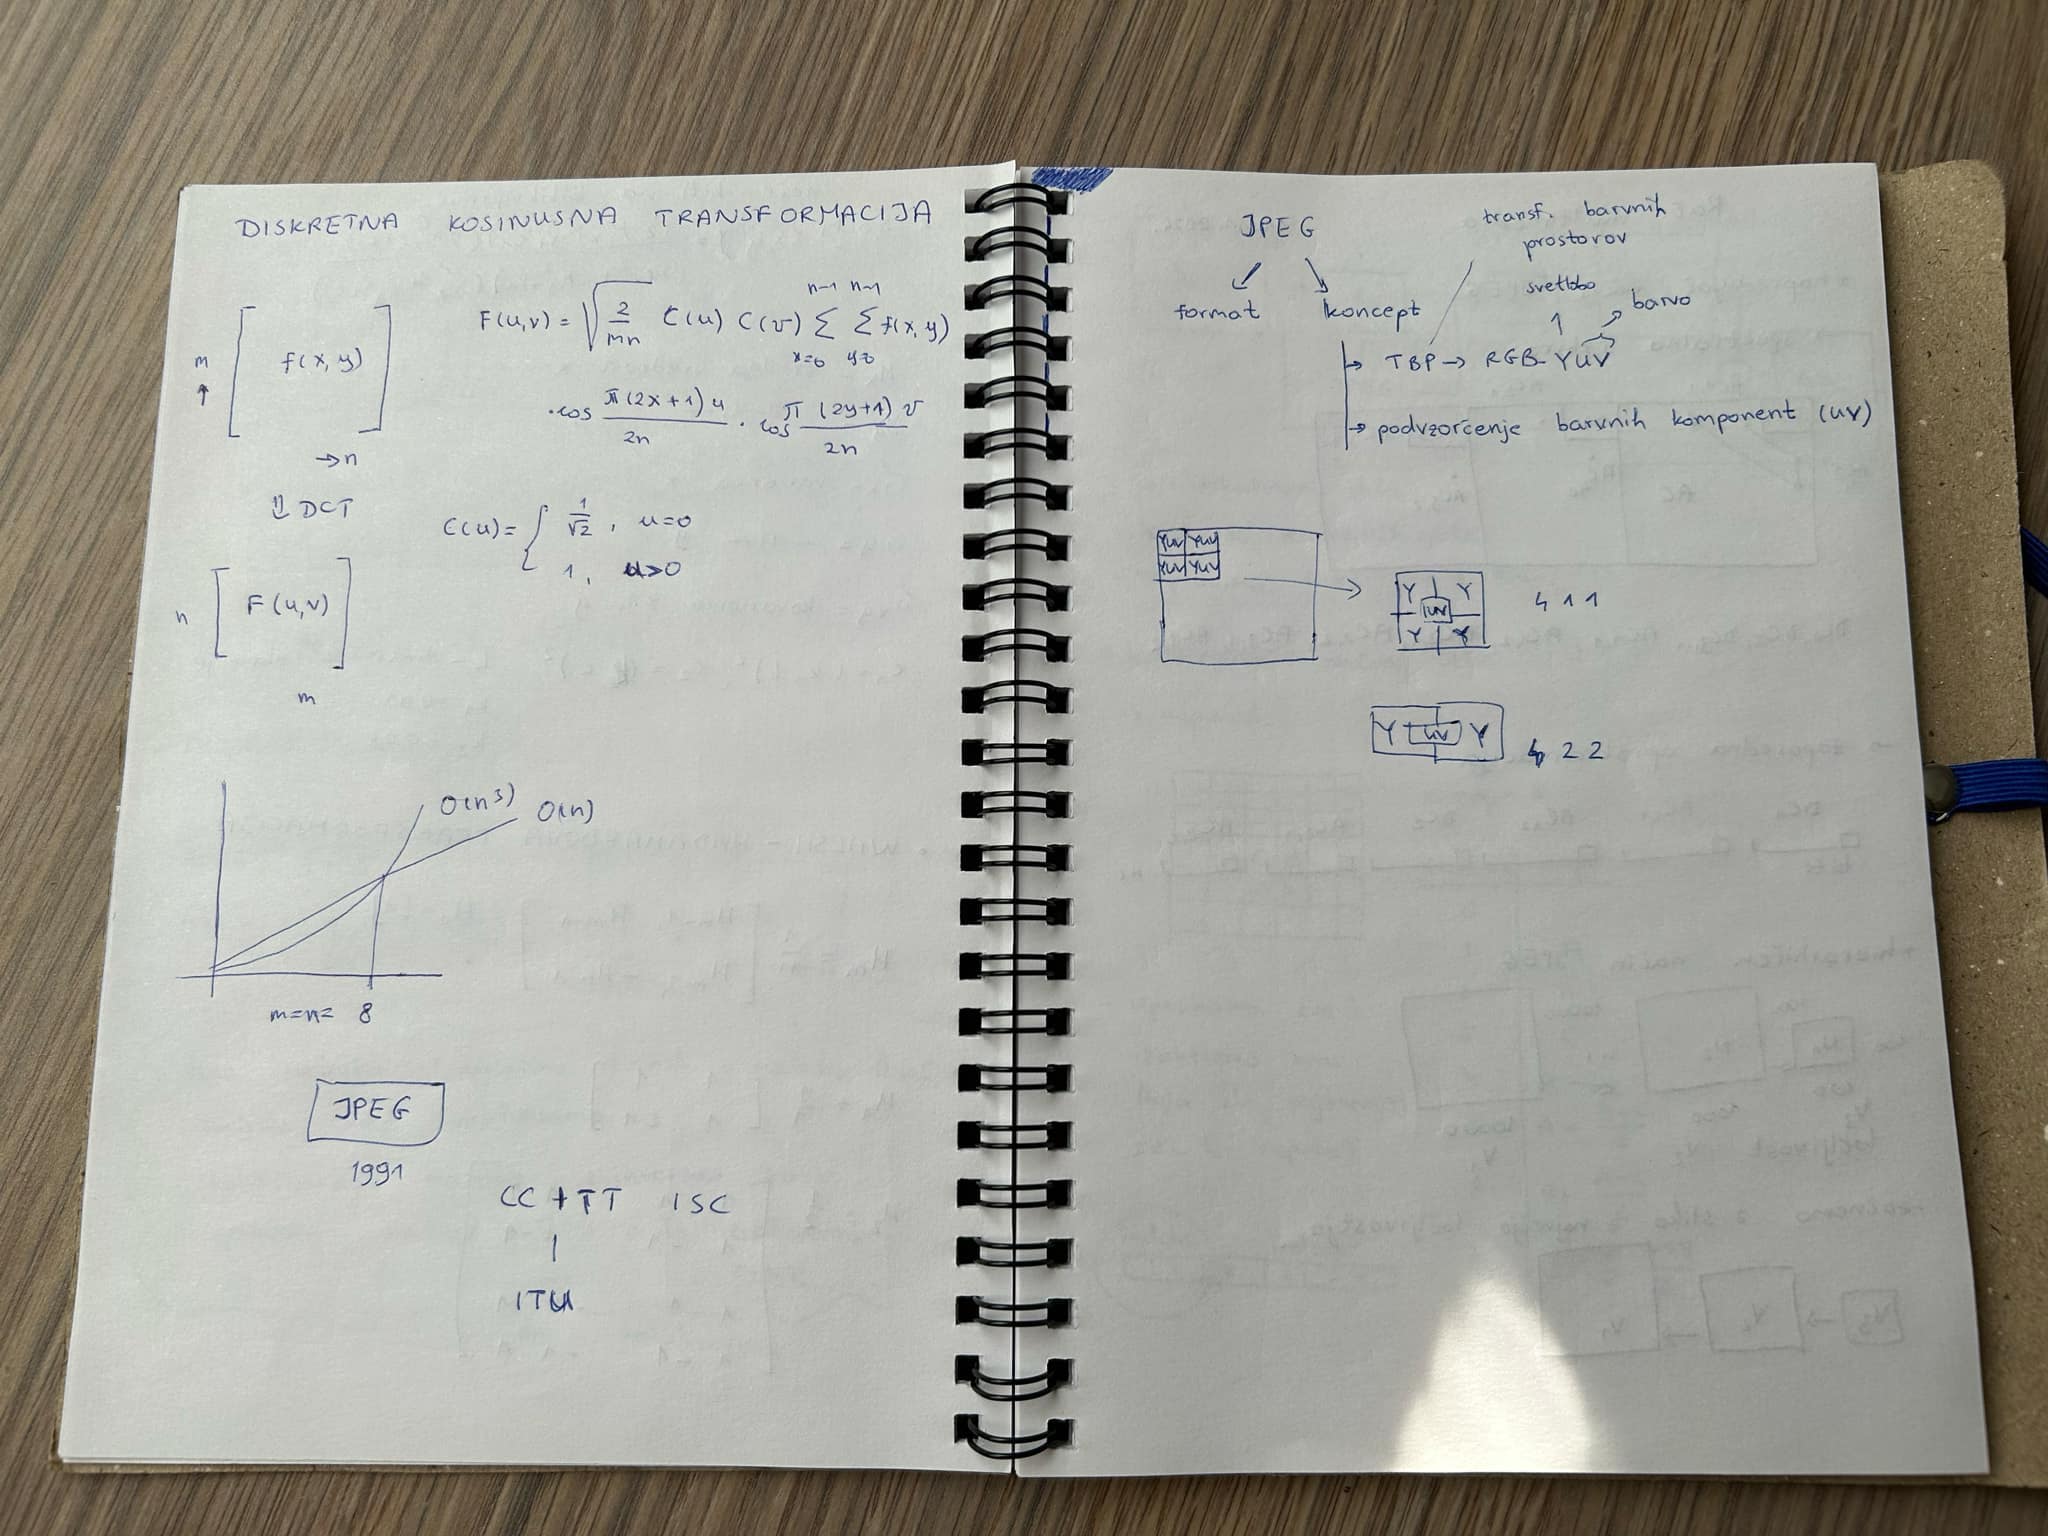 DISKRETNA KOSINUSNA TRANSFORMACIJA
m
↑
f(x,y)
→n
⇓ DCT
n
F(u,v)
m
F(u,v) = √(2/mn) C(u) C(v) Σ Σ f(x,y)
n-1 n-1
x=0 y=0
· cos π(2x+1)u / 2n · cos π(2y+1)v / 2n
C(u) = { 1/√2 , u=0
1, u>0
O(n³) O(n)
m=n= 8
JPEG
1991
CC + TT ISC
|
ITU
JPEG
format
koncept
transf. barvnih
prostorov
svetlobo
barvo
→ TBP → RGB-YUV
→ podvzorčenje barvnih komponent (UV)
YUV YUV
YUV YUV
Y Y
UV
Y Y
4 1 1
Y UV Y
4 2 2